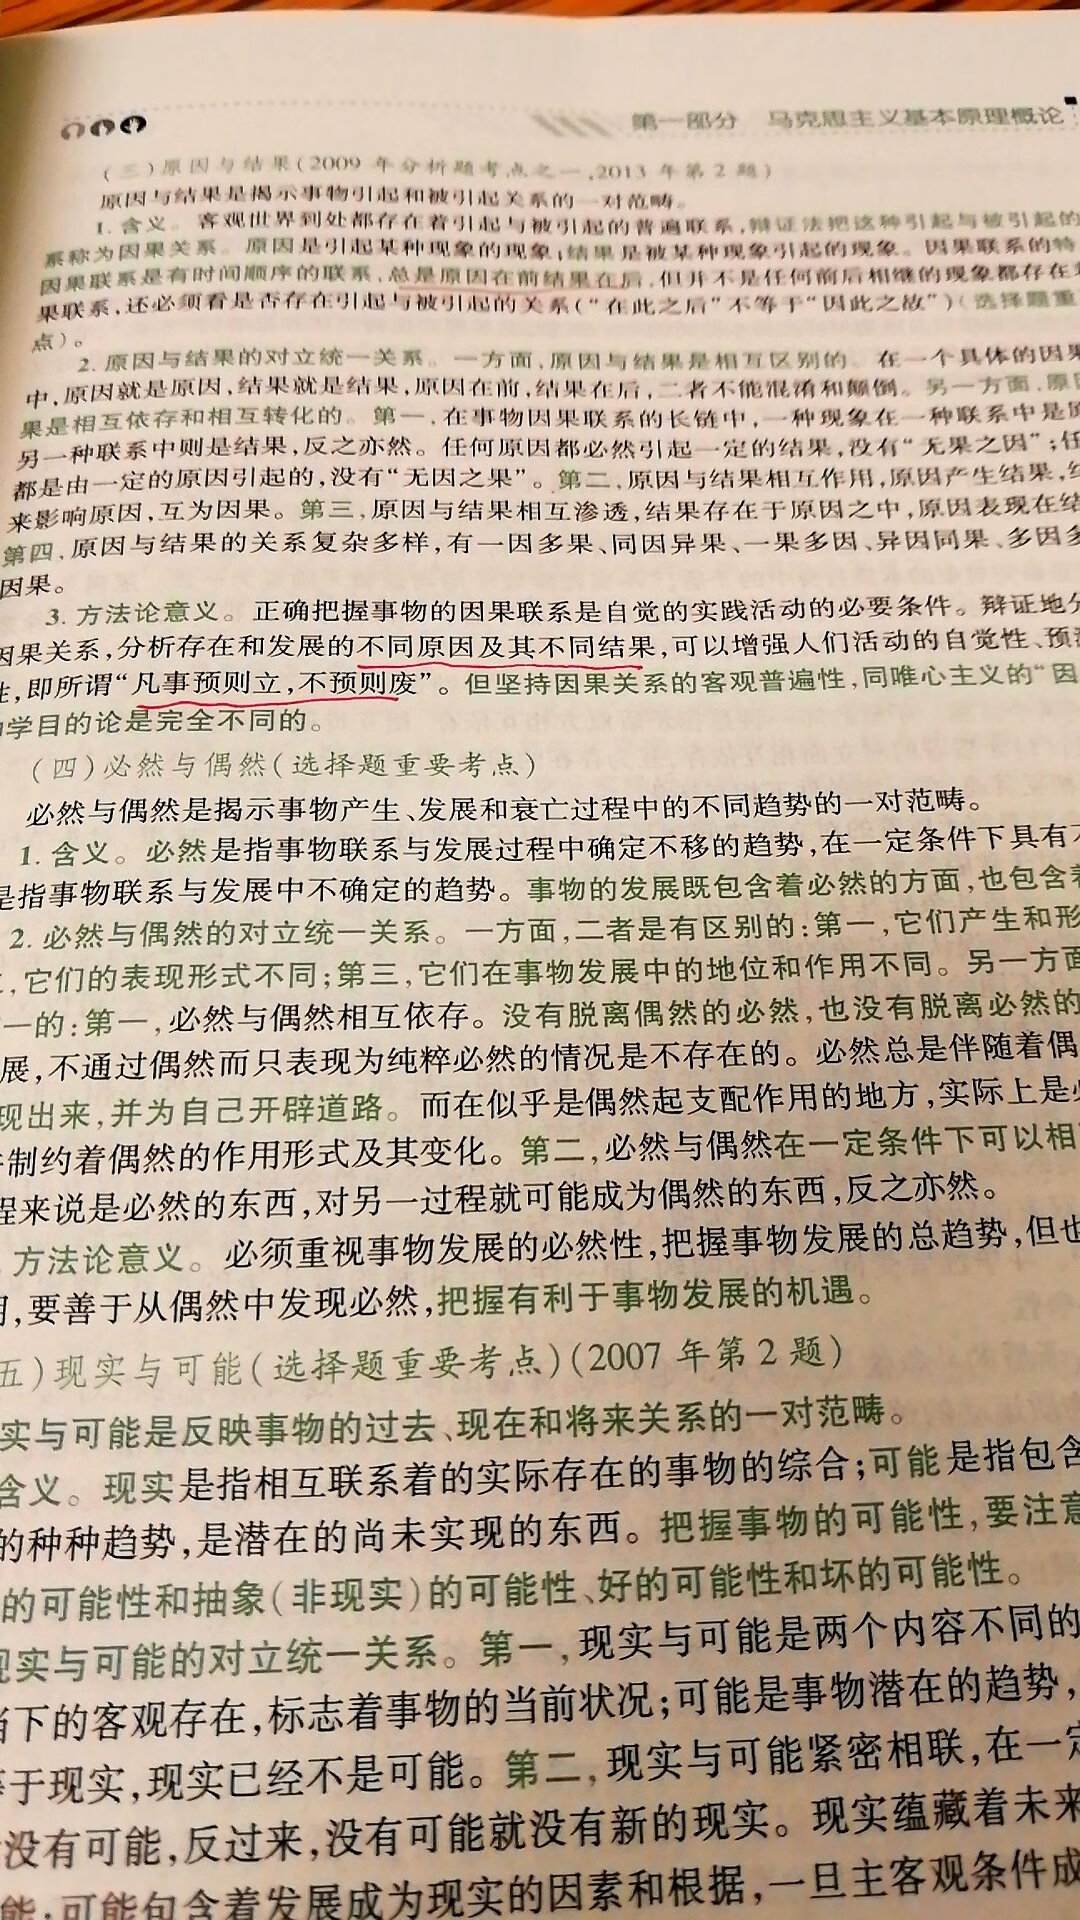 第一部分 马克思主义基本原理概论
(三)原因与结果(2009 年分析题考点之一,2013 年第 2 题)
原因与结果是揭示事物引起和被引起关系的一对范畴。
1. 含义。客观世界到处都存在着引起与被引起的普遍联系,辩证法把这种引起与被引起的
系称为因果关系。原因是引起某种现象的现象;结果是被某种现象引起的现象。因果联系的特
因果联系是有时间顺序的联系,总是原因在前结果在后,但并不是任何前后相继的现象都存在
果联系,还必须看是否存在引起与被引起的关系(“在此之后”不等于“因此之故”)(选择题重
点)。
2. 原因与结果的对立统一关系。一方面,原因与结果是相互区别的。在一个具体的因果
中,原因就是原因,结果就是结果,原因在前,结果在后,二者不能混淆和颠倒。另一方面,原
果是相互依存和相互转化的。第一,在事物因果联系的长链中,一种现象在一种联系中是
另一种联系中则是结果,反之亦然。任何原因都必然引起一定的结果,没有“无果之因”;任
都是由一定的原因引起的,没有“无因之果”。第二,原因与结果相互作用,原因产生结果,
来影响原因,互为因果。第三,原因与结果相互渗透,结果存在于原因之中,原因表现在结
第四,原因与结果的关系复杂多样,有一因多果、同因异果、一果多因、异因同果、多因多
因果。
3. 方法论意义。正确把握事物的因果联系是自觉的实践活动的必要条件。辩证地分
因果关系,分析存在和发展的不同原因及其不同结果,可以增强人们活动的自觉性、预
性,即所谓“凡事预则立,不预则废”。但坚持因果关系的客观普遍性,同唯心主义的“因
学目的论是完全不同的。
(四)必然与偶然(选择题重要考点)
必然与偶然是揭示事物产生、发展和衰亡过程中的不同趋势的一对范畴。
1. 含义。必然是指事物联系与发展过程中确定不移的趋势,在一定条件下具有
是指事物联系与发展中不确定的趋势。事物的发展既包含着必然的方面,也包含
2. 必然与偶然的对立统一关系。一方面,二者是有区别的:第一,它们产生和形
,它们的表现形式不同;第三,它们在事物发展中的地位和作用不同。另一方面
一的:第一,必然与偶然相互依存。没有脱离偶然的必然,也没有脱离必然的
展,不通过偶然而只表现为纯粹必然的情况是不存在的。必然总是伴随着偶
现出来,并为自己开辟道路。而在似乎是偶然起支配作用的地方,实际上是
制约着偶然的作用形式及其变化。第二,必然与偶然在一定条件下可以相
程来说是必然的东西,对另一过程就可能成为偶然的东西,反之亦然。
方法论意义。必须重视事物发展的必然性,把握事物发展的总趋势,但也
,要善于从偶然中发现必然,把握有利于事物发展的机遇。
五)现实与可能(选择题重要考点)(2007 年第 2 题)
实与可能是反映事物的过去、现在和将来关系的一对范畴。
含义。现实是指相互联系着的实际存在的事物的综合;可能是指包含
的种种趋势,是潜在的尚未实现的东西。把握事物的可能性,要注意
的可能性和抽象(非现实)的可能性、好的可能性和坏的可能性。
现实与可能的对立统一关系。第一,现实与可能是两个内容不同的
当下的客观存在,标志着事物的当前状况;可能是事物潜在的趋势,
等于现实,现实已经不是可能。第二,现实与可能紧密相联,在一定
没有可能,反过来,没有可能就没有新的现实。现实蕴藏着未来
能;可能包含着发展成为现实的因素和根据,一旦主客观条件成